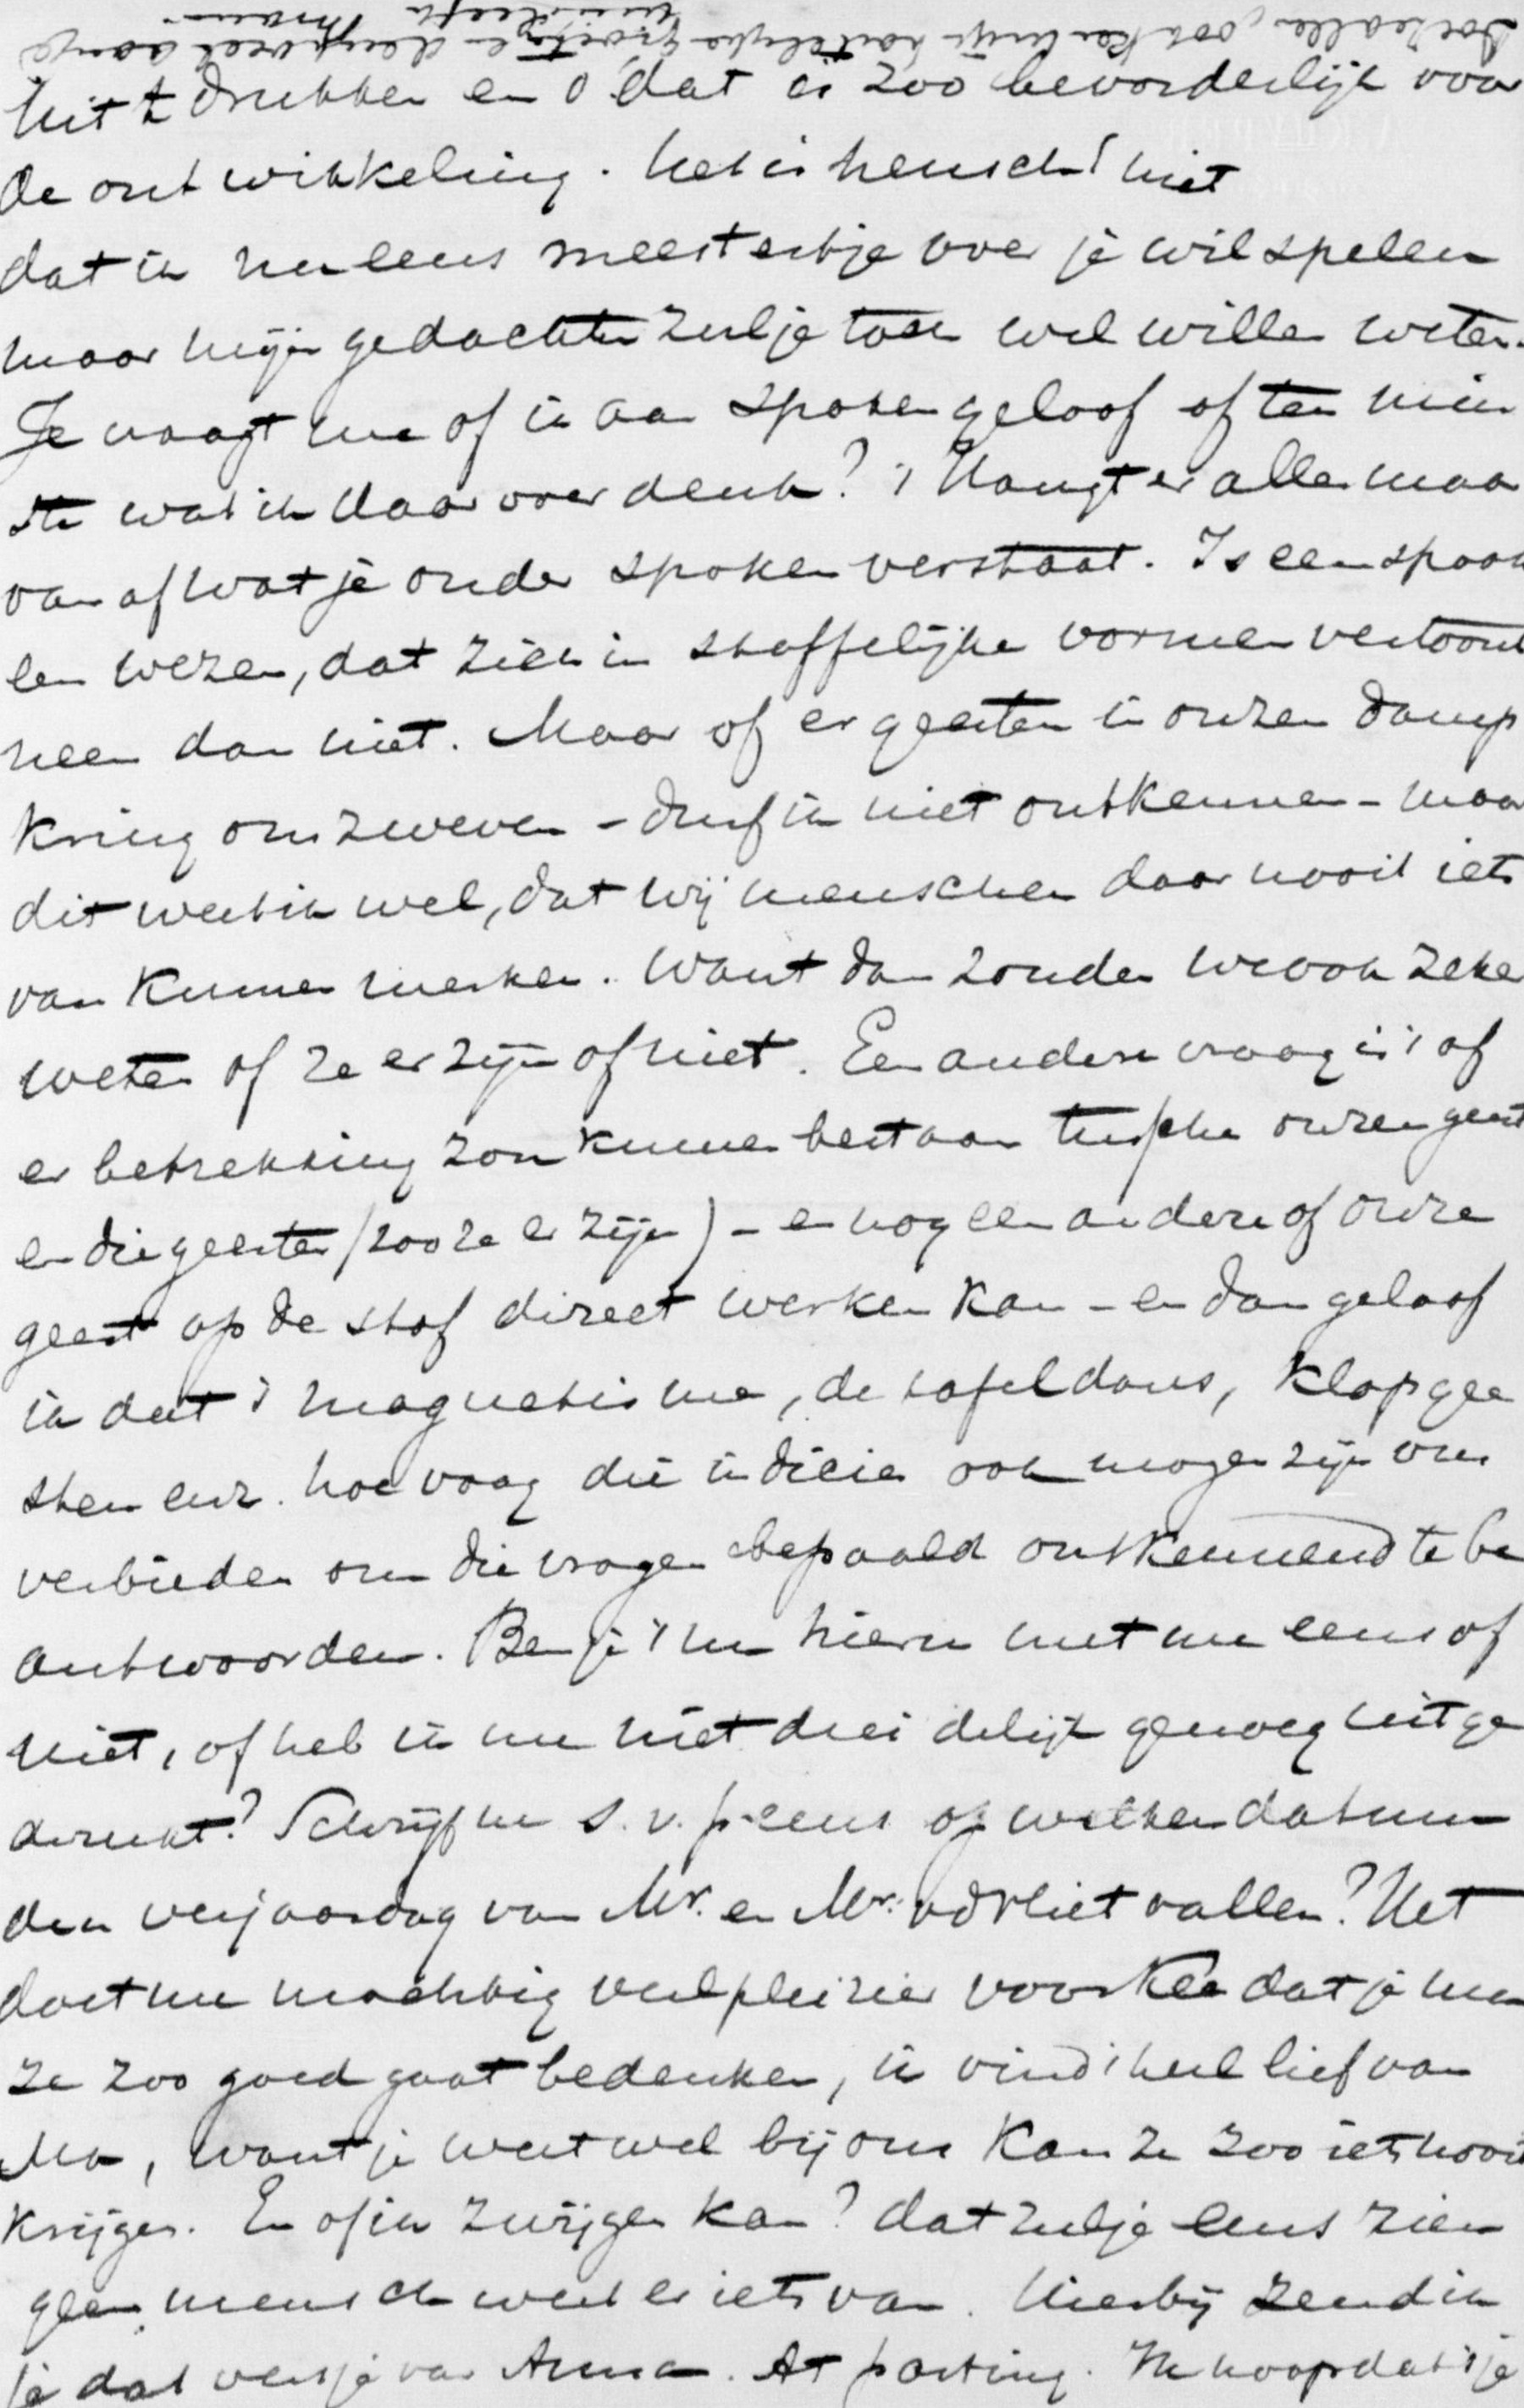 uit te drukken en o, dat is zoo bevorderlijk voor
de ontwikkeling. Het is heusch niet
dat ik nu eens meestertje over je wil spelen
maar mijn gedachten zul je toch wel willen weten.
Je vraagt me of ik aan spoken geloof of ten min
ste wat ik daarover denk? 't Hangt er alle maar
van af wat je onder spoken verstaat. Is een spook
een wezen, dat zich in stoffelijke vormen vertoont
neen dan niet. Maar of er geesten in onzen damp
kring omzweven - durf ik niet ontkennen - maar
dit weet ik wel, dat wij menschen daar nooit iets
van kunnen merken. Want dan zouden we ook zeker
weten of ze er zijn of niet. Een andere vraag is 't of
er betrekking zou kunnen bestaan tusschen onzen geest
en die geesten (zoo ze er zijn) - en nog een andere of onze
geest op de stof direct werken kan - en dan geloof
ik dat 't magnetisme, de tafeldans, klopgee
sten enz. hoe vaag die indicien ook mogen zijn ons
verbieden om die vragen bepaald ontkennend te be
antwoorden. Ben je 't nu hierin met me eens of
niet, of heb ik me niet duidelijk genoeg uitge
drukt? Schrijf me s.v.p. eens op welken datum
den verjaardag van Mr. en Mr. vd Vliet vallen? Het
doet me machtig veel pleizier voor Kee dat je me
ze zoo goed gaat bedenken, ik vind 't heel lief van
Ma, want je weet wel bij ons kan ze zoo iets nooit
krijgen. En of ik zwijgen kan? dat zul je eens zien
geen mensch weet er iets van. Hierbij zend ik
je dat versje van Anna. At parting. Ik hoop dat 't je